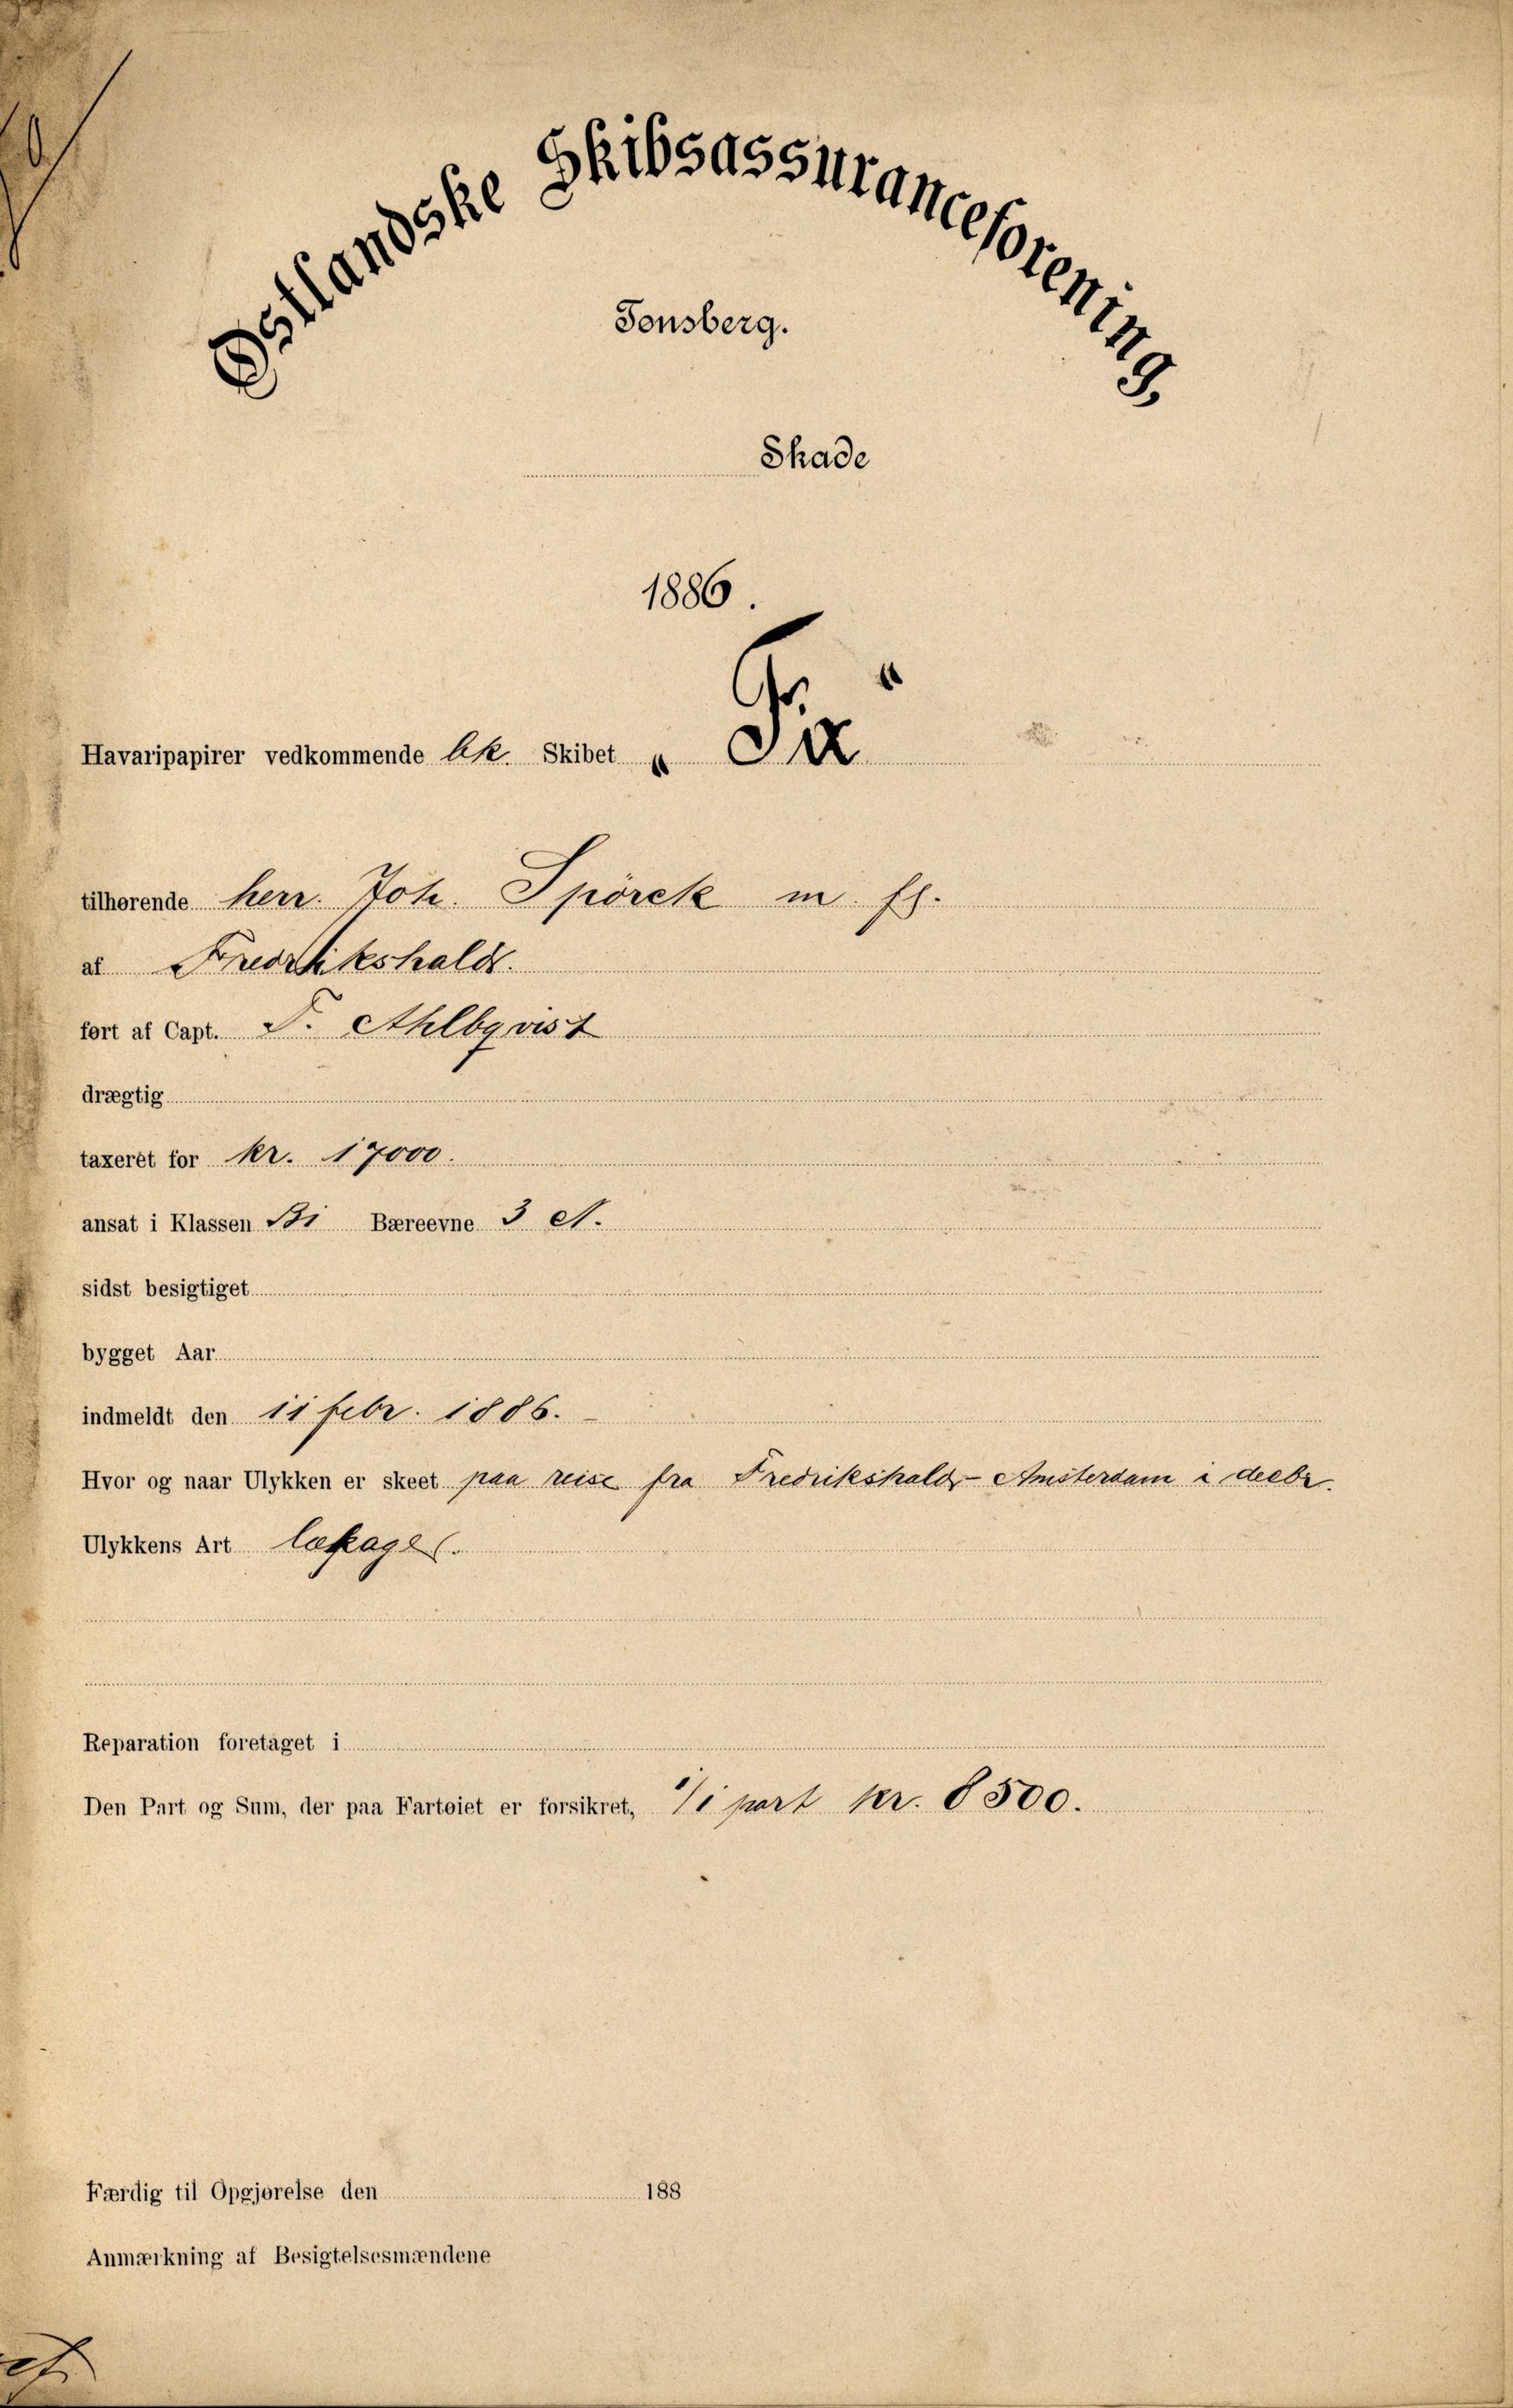 Østlandske Skibsassuranceforening,
Tønsberg.
Skade
1886.
Havaripapirer vedkommende bk. Skibet „Fix“
tilhørende herr. Joh. Spörck m. fl.
af Fredrikshald.
ført af Capt. F. Ahlbqvist
drægtig
taxeret for kr. 17000.
ansat i Klassen B1 Bæreevne 3 A.
sidst besigtiget
bygget Aar
indmeldt den 11 febr. 1886.
Hvor og naar Ulykken er skeet paa reise fra Fredrikshald - Amsterdam i decbr.
Ulykkens Art lækage.
Reparation foretaget i
Den Part og Sum, der paa Fartøiet er forsikret, 1/1 part kr. 8500.
Færdig til Opgjørelse den 188
Anmærkning af Besigtelsesmændene